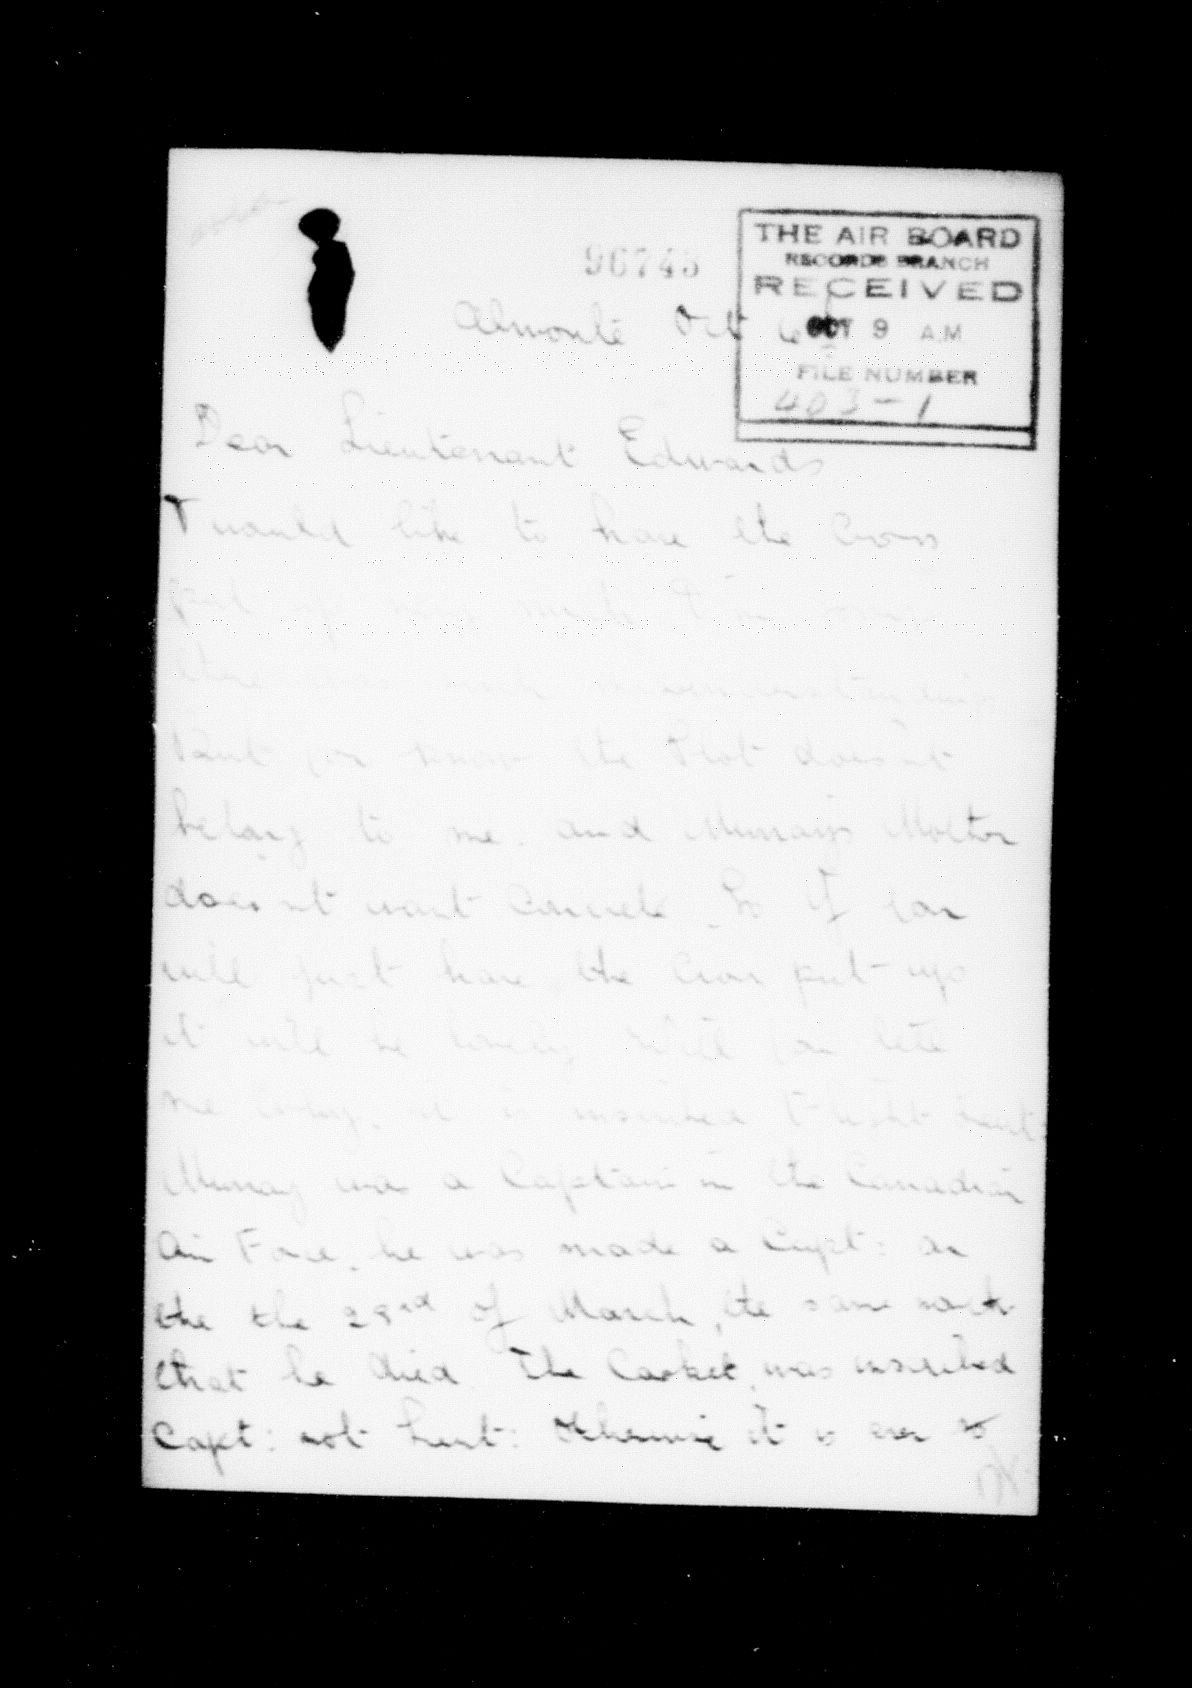 96745
THE AIR BOARD
RECORDS BRANCH
RECEIVED
OCT 9 AM
FILE NUMBER
403-1
Almonte Oct 6
Dear Lieutenant Edwards
I would like to have the Cross
put up very much
there was some
but you know the Plot doesn't
belong to me. and Murrays Mother
doesn't want Concrete. So if you
will just have the Cross put up
it will be lovely. Will you tell
me why it is inscribed Flight Lieut
Murray was a Captain in the Canadian
Air Force. he was made a Capt: on
the the 23rd of March, the same month
that he died. The Casket was inscribed
Capt: not Lieut: Otherwise it is ever so